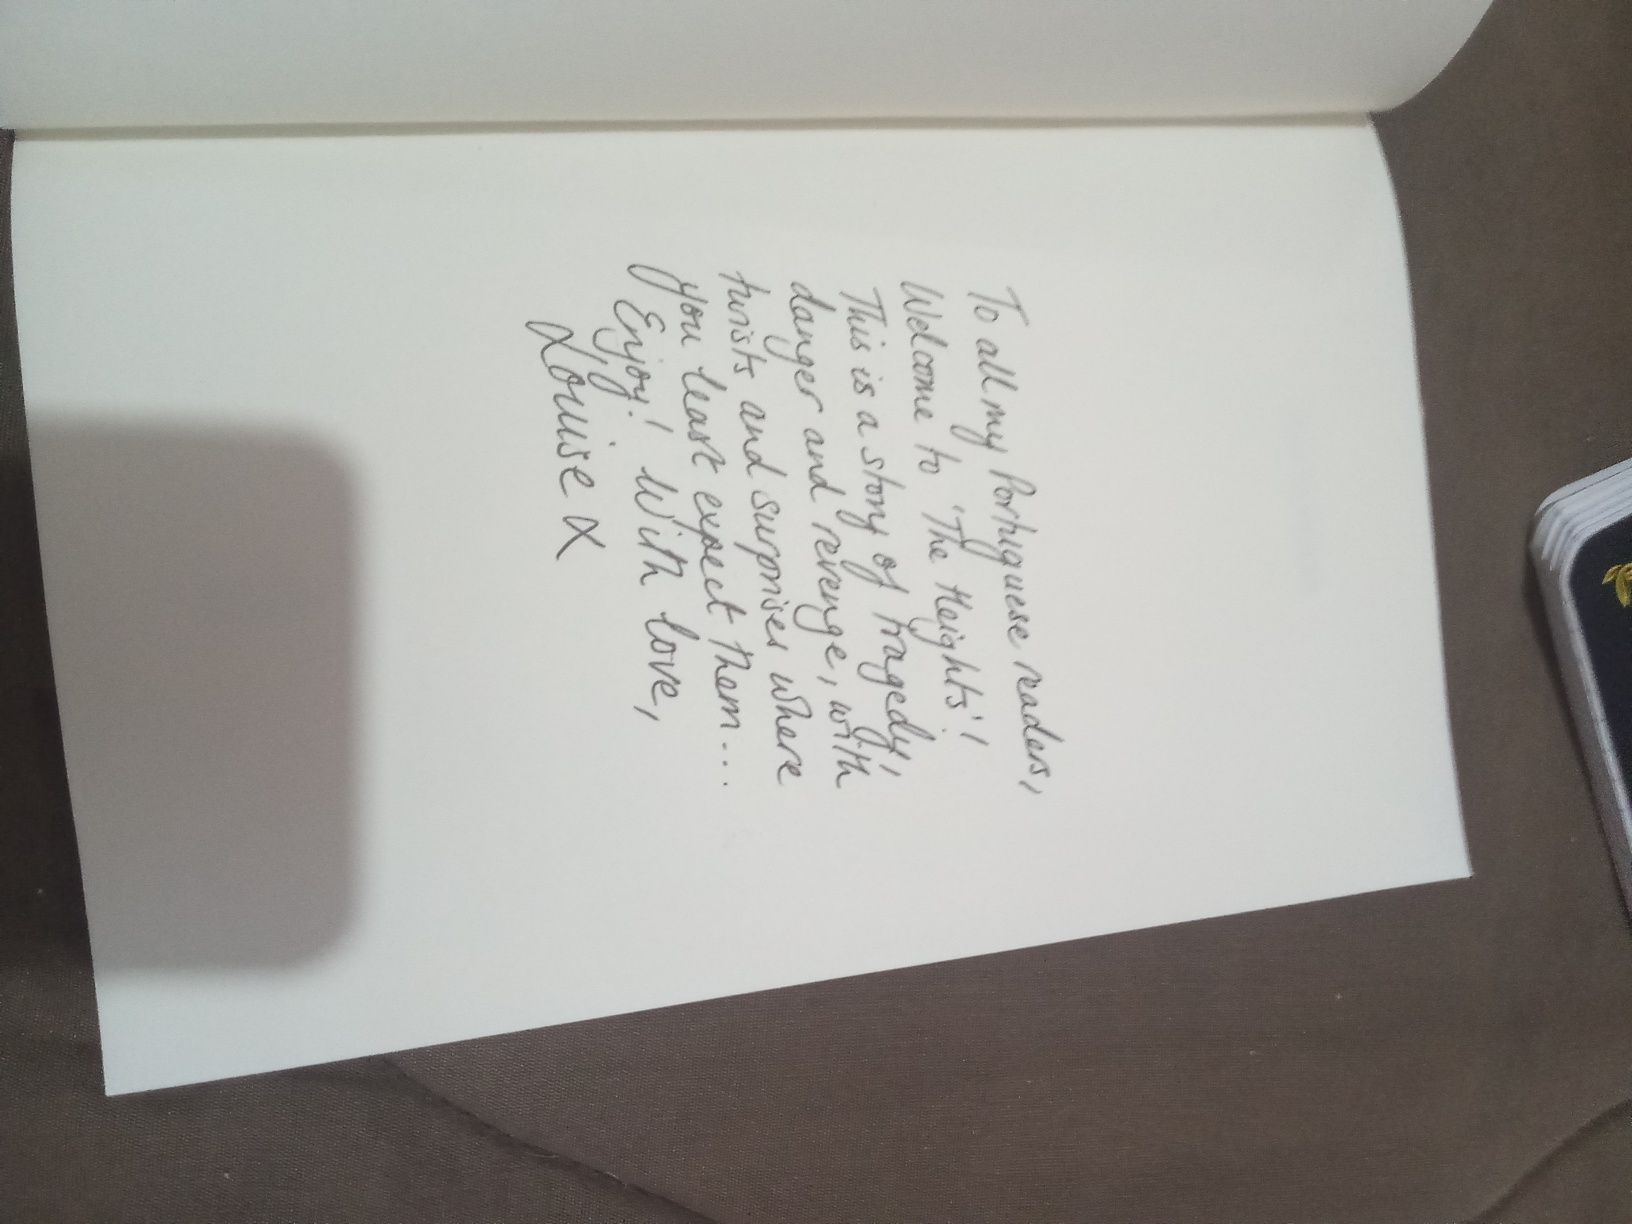 To all my Portuguese readers,
Welcome to 'The Heights'!
This is a story of tragedy,
danger and revenge, with
twists and surprises where
you least expect them...
Enjoy! With love,
Louise X